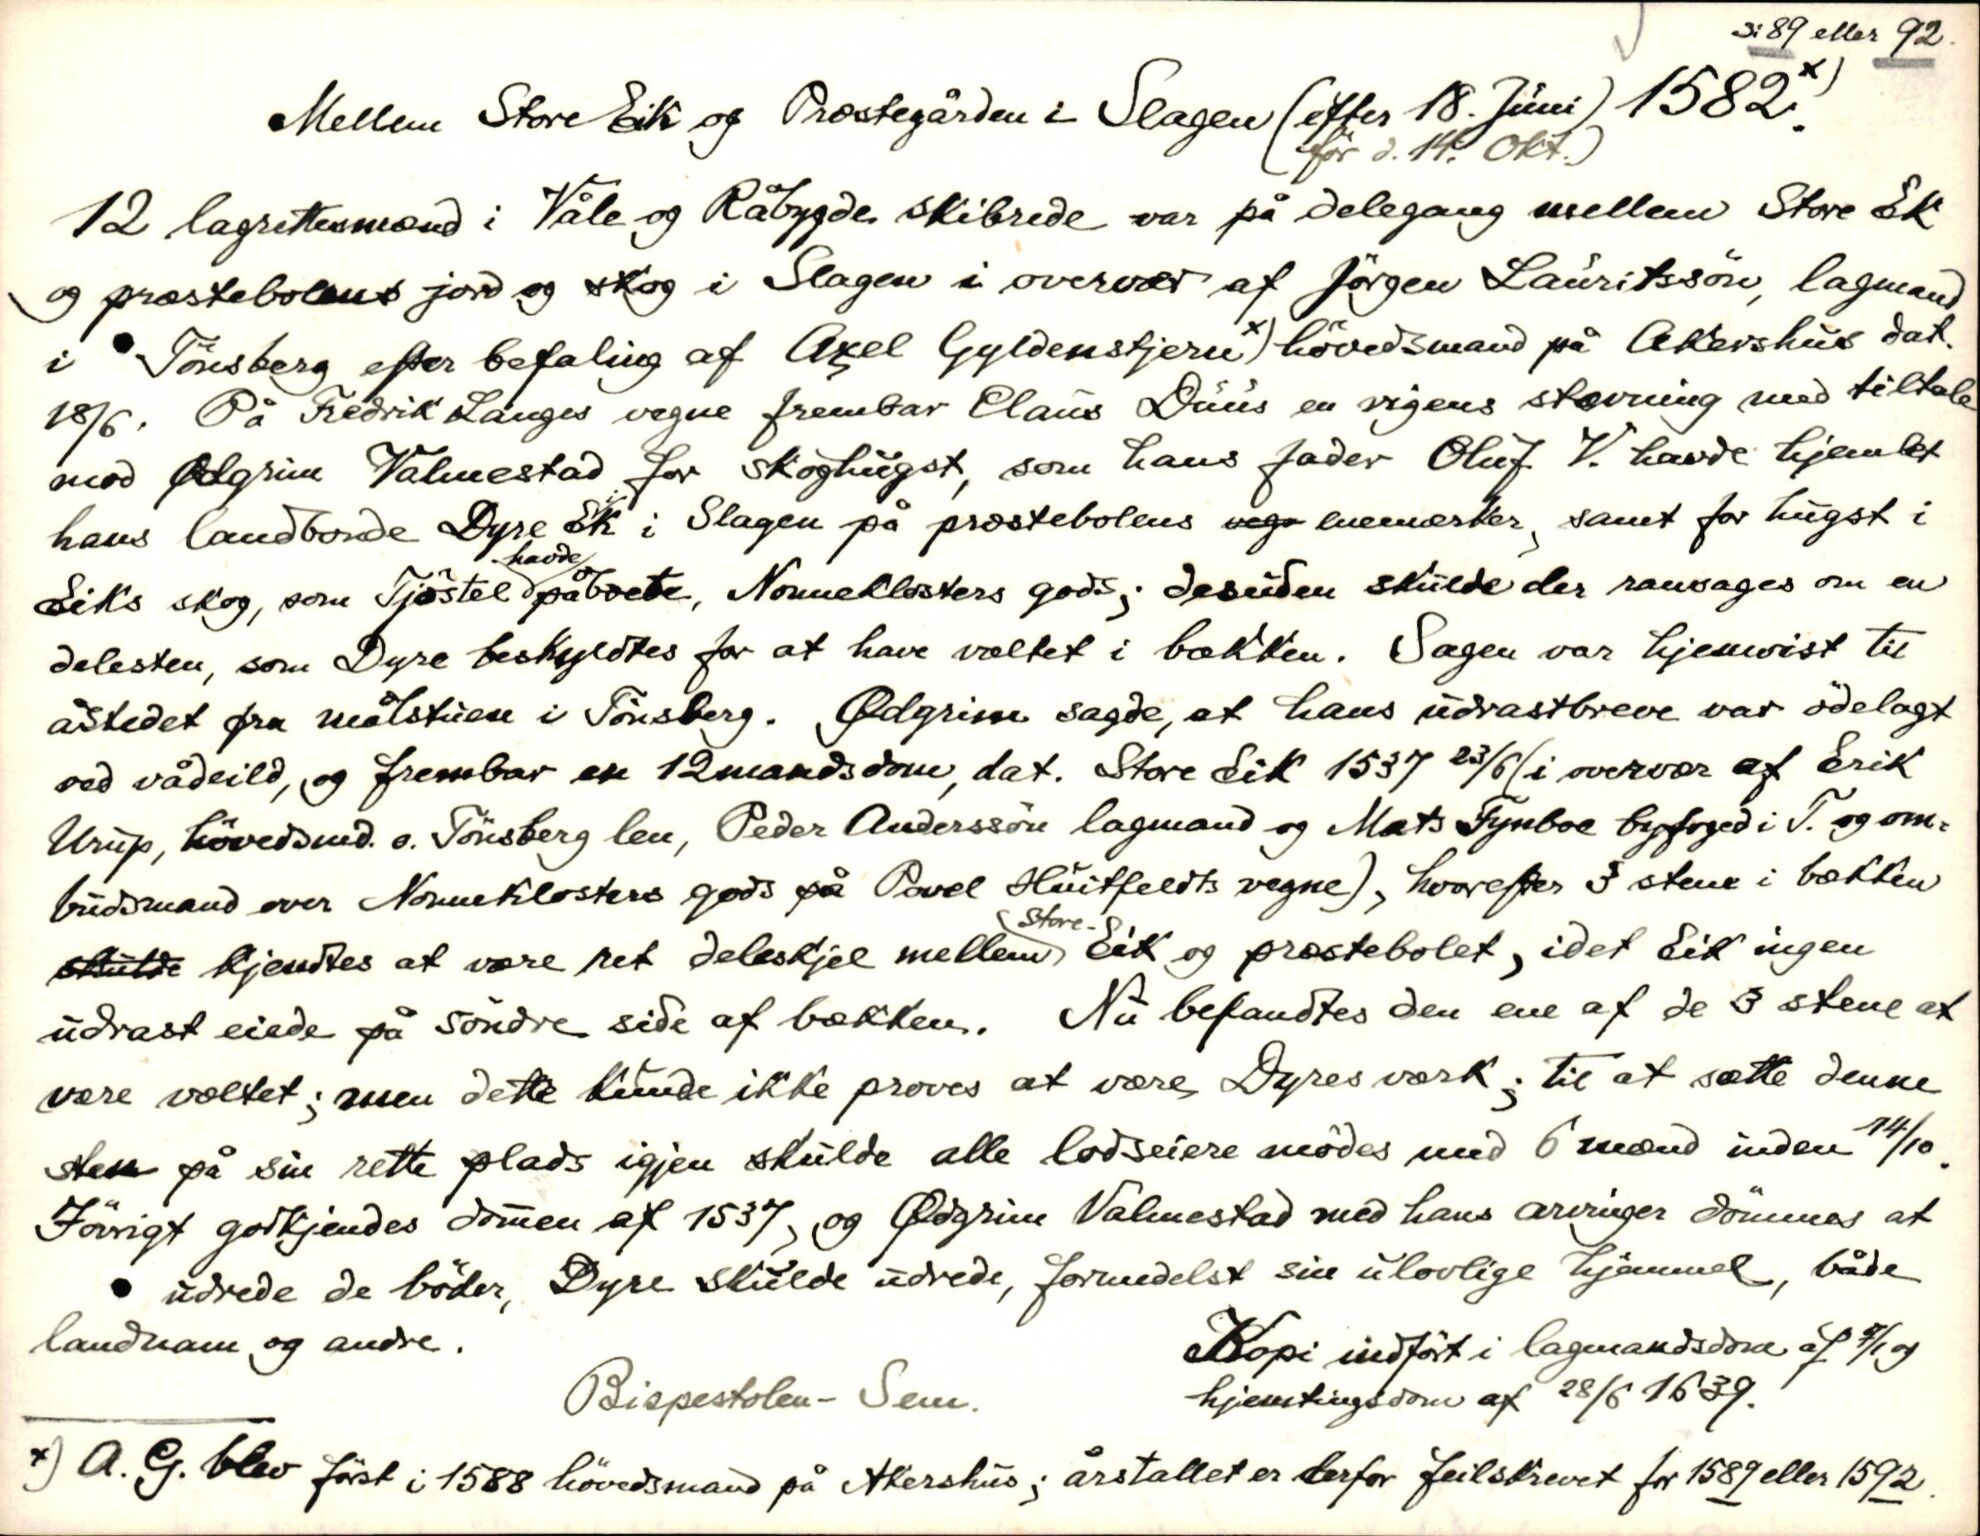 ɔ: 89 eller 92.
Mellem Store Eik og Præstegården i Slagen (efter 18. Juni) 1582.x)
(før d. 14. Okt.)
12 lagrettesmænd i Våle og Råbygde skibrede var på delegang mellem Store Ek
og præstebolens jord og skog i Slagen i overvær af Jörgen Lauritssön, lagmand
i Tönsberg efter befaling af Axel Gyldenstjern x) hövedsmand på Akershus dat.
18/6. På Fredrik Langes vegne frembar Claus Duus en rigens stævning med tiltale
mod Ødgrim Valmestad for skoghugst, som hans fader Oluf V. havde hjemlet
hans landbonde Dyre Ek i Slagen på præstebolens enemærker, samt for hugst i
Eiks skog, som Tjöstel havde påboete, Nonneklosters gods; desuden skulde der ransages om en
delesten, som Dyre beskyldtes for at have væltet i bækken. Sagen var hjemvist til
åstedet fra målstuen i Tönsberg. Ødgrim sagde, at hans udrastbreve var ödelagt
ved vådeild, og frembar en 12mandsdom, dat. Store Eik 1537 23/6 (i overvær af Erik
Urup, hövedsmd. o. Tönsberg len, Peder Anderssön lagmand og Mats Fynboe byfoged i T. og om-
budsmand over Nonneklosters gods på Povel Huitfeldts vegne), hvorefter 3 stene i bækken
skulde kjendtes at være ret deleskjel mellem Store-Eik og præstebolet, idet Eik ingen
udrast eiede på söndre side af bækken. Nu befandtes den ene af de 3 stene at
være væltet; men dette kunde ikke proves at være Dyres værk; til at sætte denne
sten på sin rette plads igjen skulde alle lodseiere mödes med 6 mænd inden 14/10.
Forövrigt godkjendes dommen af 1537, og Ødgrim Valmestad med hans arvinger dömmes at
udrede de böder, Dyre skulde udrede, formedelst sin ulovlige hjemmel, både
landnam og andre.
Kopi indfört i lagmandsdom af 7/1 og
hjemtingsdom af 28/6 1639.
Bispestolen - Sem.
x) A. G. blev först i 1588 hövedsmand på Akershus; årstallet er derfor feilskrevet for 1589 eller 1592.